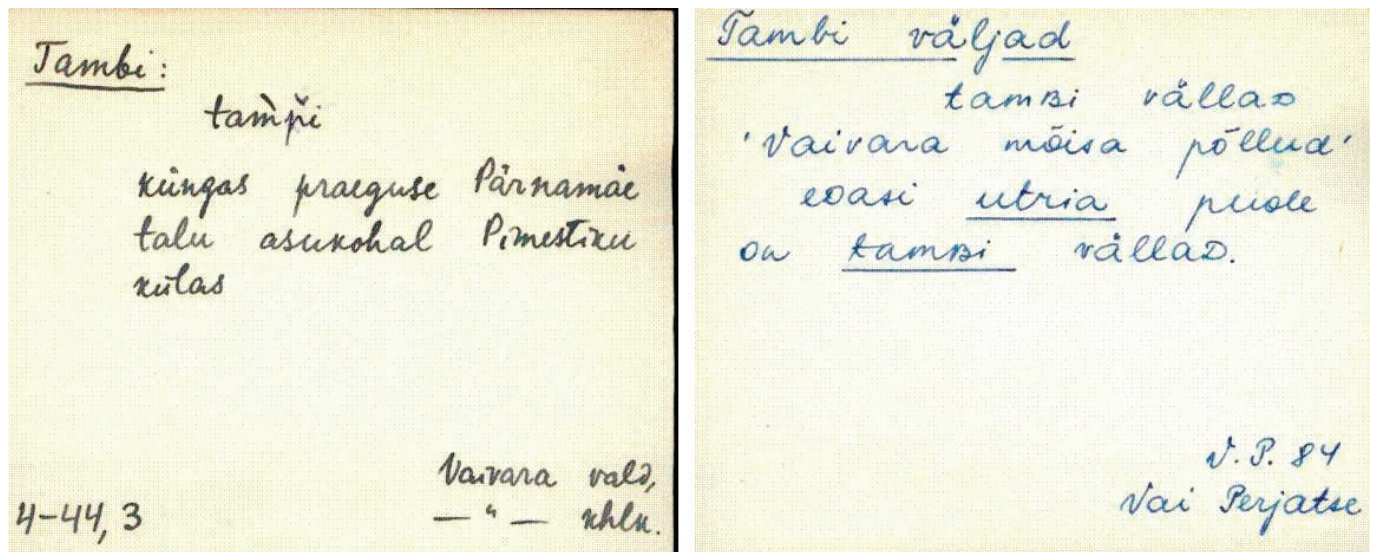 Tambi:
tam̀p̌i
küngas praeguse Pärnamäe
talu asukohal Pimestiku
külas
Vaivara vald,
4-44, 3 — " — khlk.
Tambi väljad
tamʙi vällaᴅ
'Vaivara mõisa põllud'
eᴅasi utria puole
on tamʙi vällaᴅ.
V.P. 84
Vai Perjatse